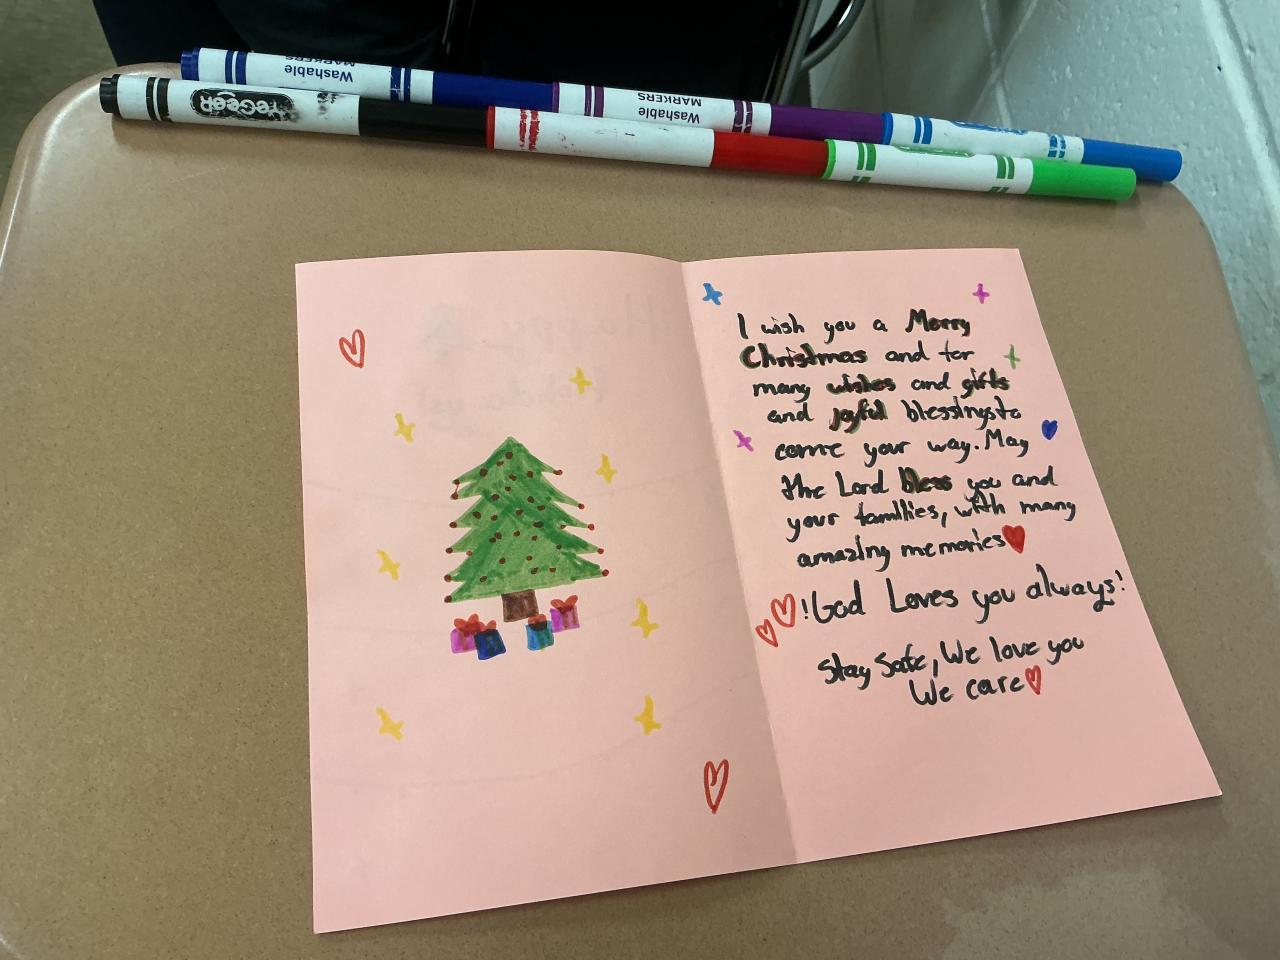 Washable
MARKERS
Washable
MARKERS
I wish you a Merry
Christmas and for
many wishes and gifts
and joyful blessings to
come your way. May
the Lord bless you and
your families, with many
amazing memories
!God Loves you always!
Stay Safe, We love you
We care